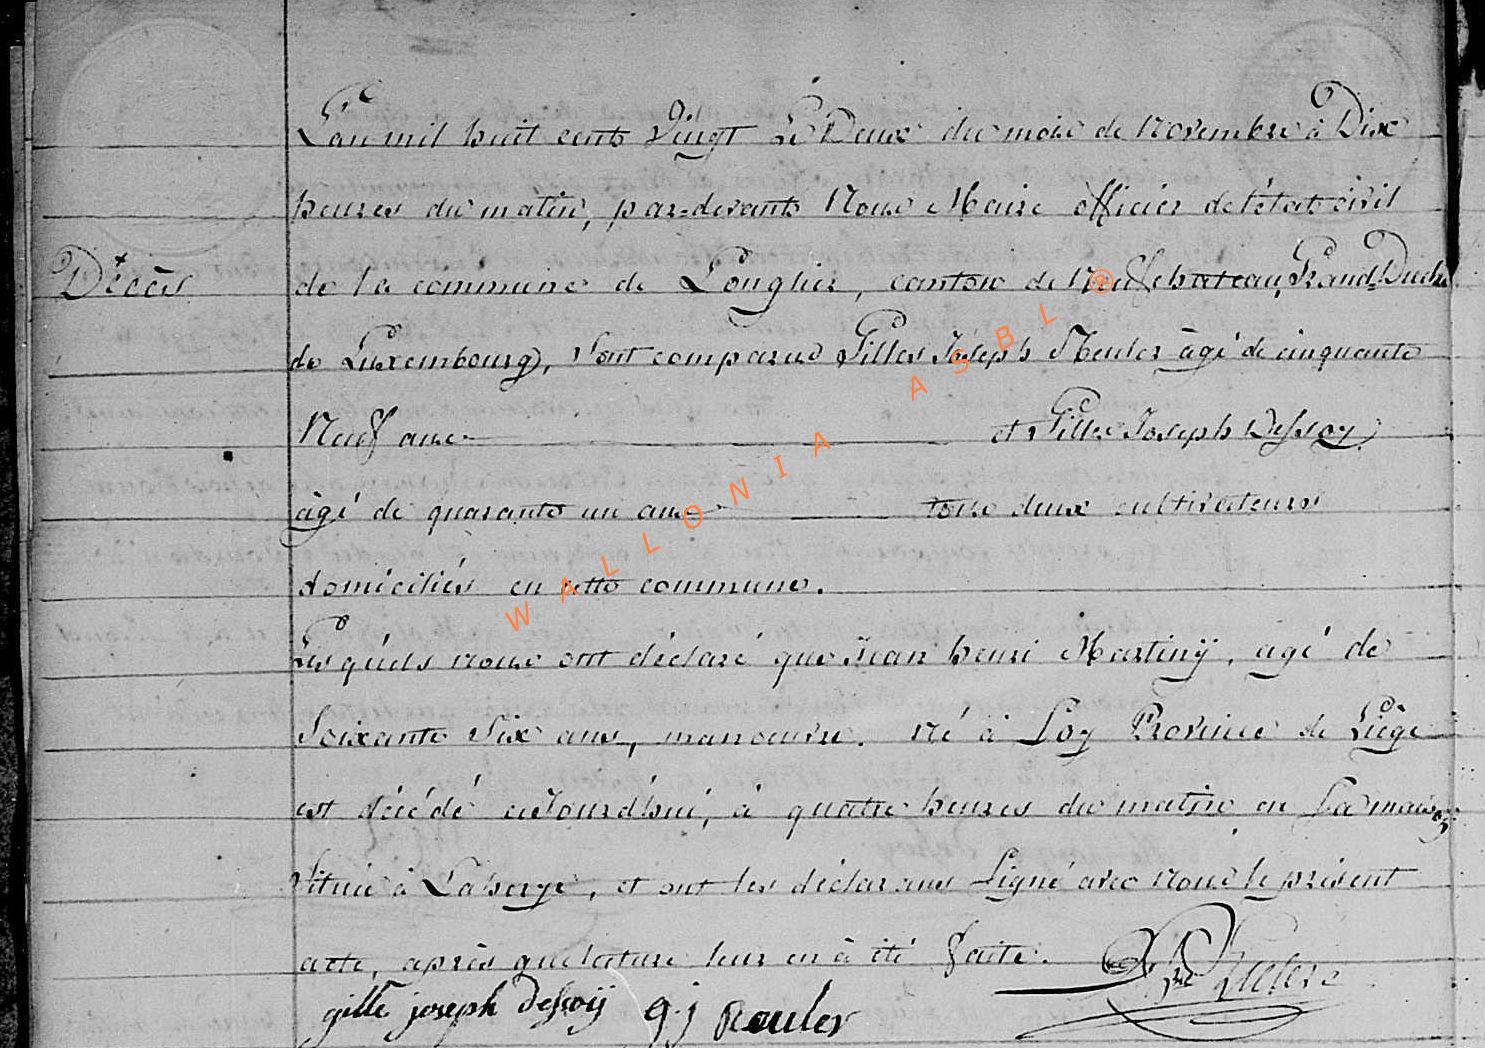 L'an mil huit cents Vingt Le Deux du mois de Novembre à Dix
heures du matin, par-devants Nous Maire officier de l'état civil
Décès
de la commune de Longlier, canton de Neufchateau, Grand-Duché
de Luxembourg, sont comparus Gilles Joseph âgé de cinquante
Neuf ans et Gilles Joseph Dessoy
âgé de quarante un ans tous deux cultivateurs
domiciliés en cette commune.
Lesquels nous ont déclaré que Jean henri Martinÿ, agé de
Soixante Six ans, manoeuvre. né à Province de Liège
est décédé aujourd'hui, à quatre heures du matin en Sa maison
Située à Laherye, et ont les déclarans Signé avec Nous le présent
acte, après que lecture leur en à été faite.
gille joseph dessoÿ g.j
WALLONIA ASBL ®